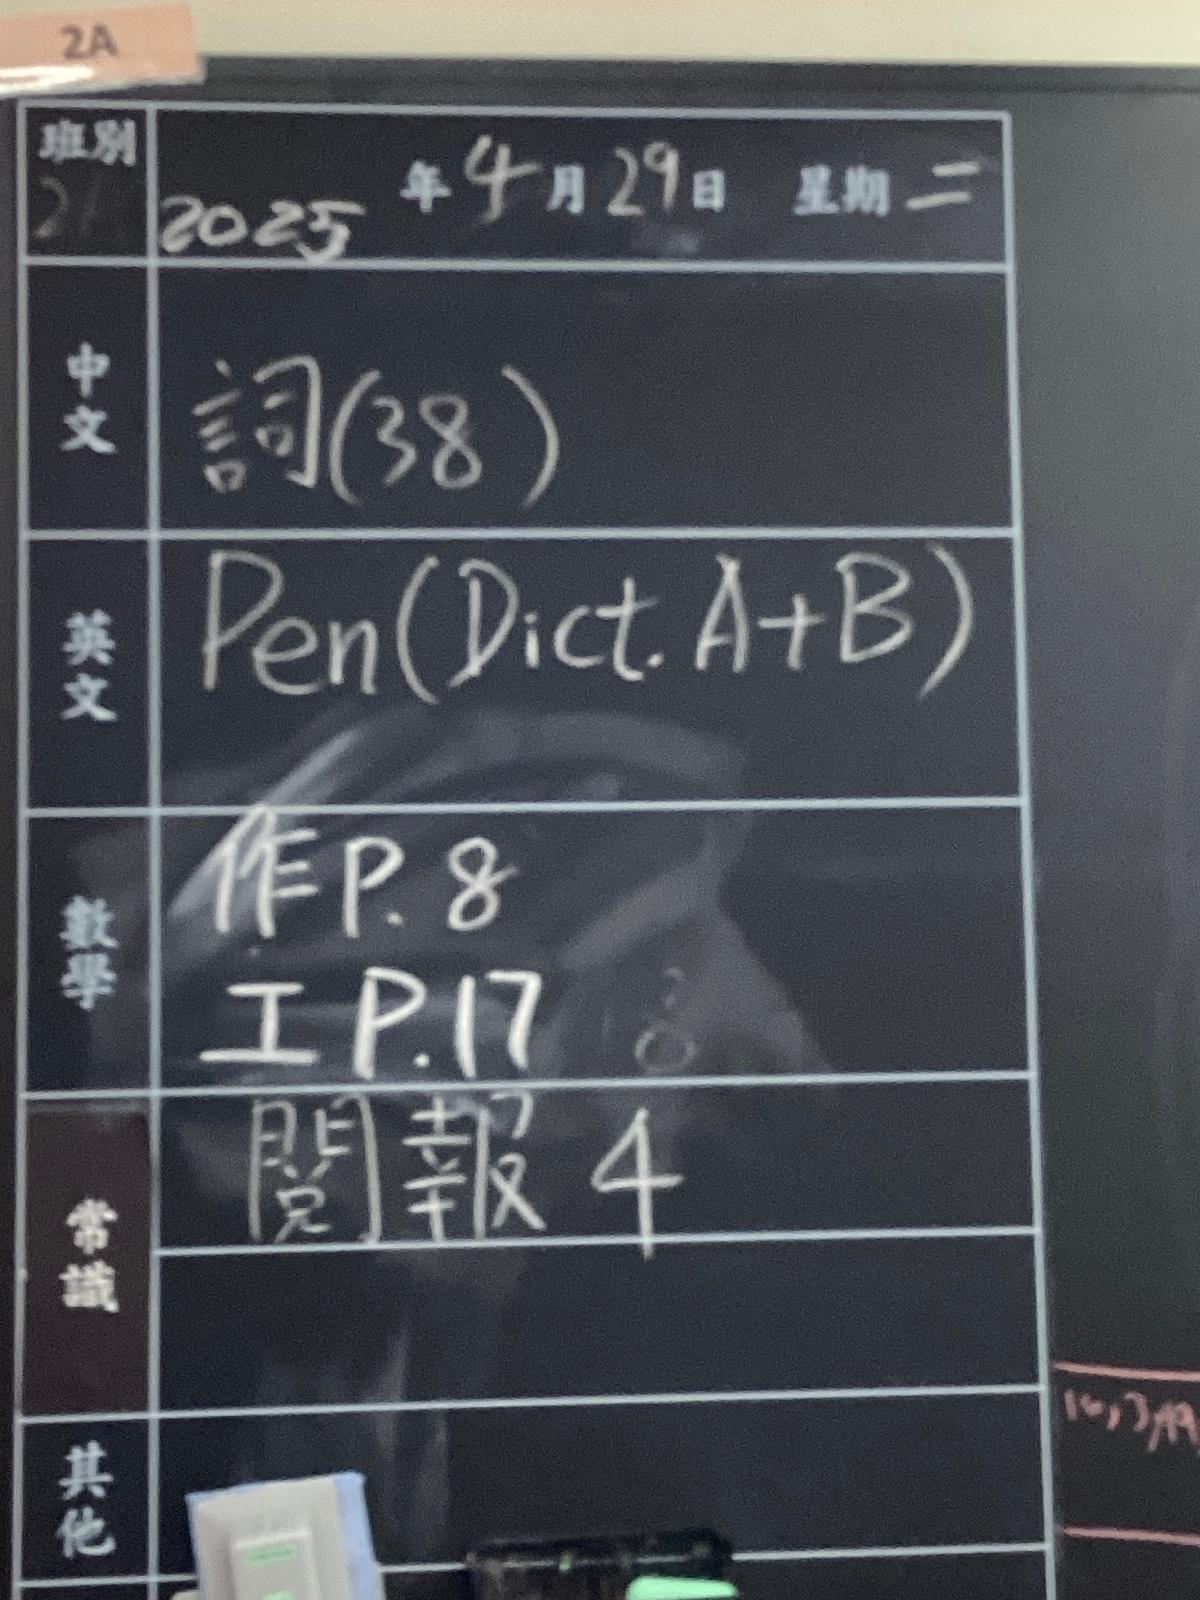 2A
班別
2025 年 4 月 29 日 星期 二
中文
詞(38)
英文
Pen(Dict. A+B)
數學
作 P. 8
工 P. 17
常識
閱報 4
其他